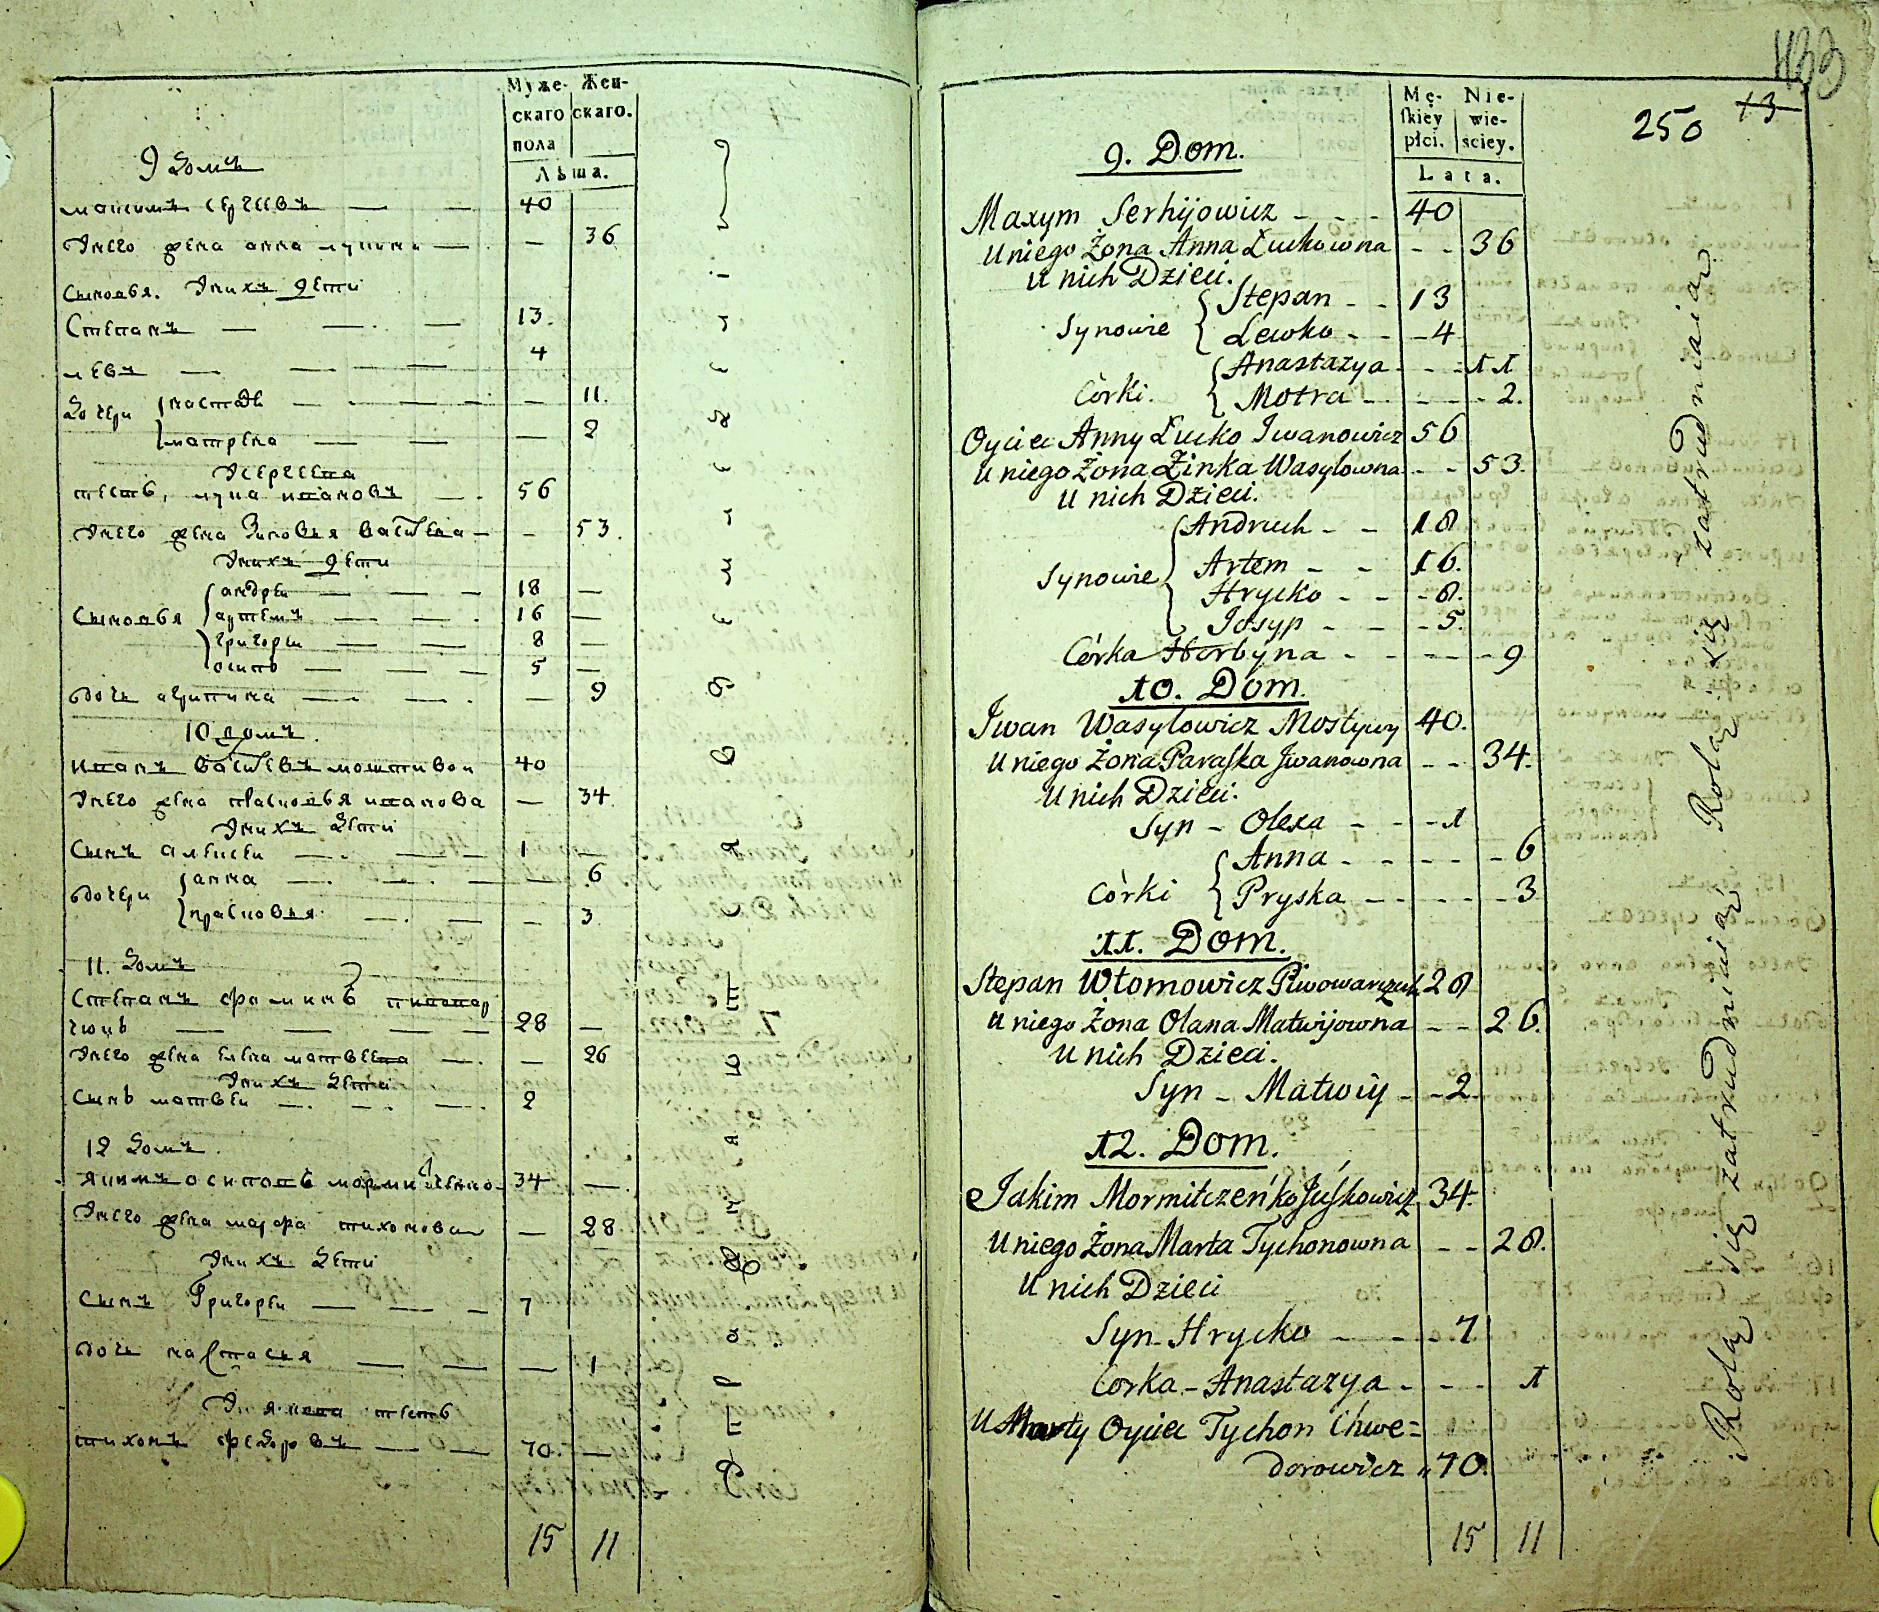 Муже- Жен-
скаго скаго.
пола
Лѣта.
9 домъ
максимъ сергеевъ — — 40
Унего жена анна лукина — — 36
сыновья. Уних дети
Степанъ — — — 13.
левъ — — — 4
дочери настасья — — — — 11.
матрена — — — 2
тесть, лука ивановъ — 56
Унего жена Зиновья василева — — 53.
Унихъ дети
андрей — — — 18 —
сыновья артемъ — — — 16 —
григорей — — — 8 —
осипъ — — — 5 —
дочь — — — — 9
10 домъ.
иванъ василевъ 40
Унего жена прасковья иванова — 34
Унихъ дети
сынъ алексей — — — 1 —
анна — — — — 6
дочери
прасковья — — — — 3
11. домъ
Степанъ фоминъ пивовар
чюкъ — — — — 28 —
Унего жена елена матвеева — — 26
Унихъ дети
сынъ матвей — — — 2
12 домъ.
якимъ осиповъ 34 —
Унего жена марфа тихонова — 28
Унихъ дети
сынъ Григорей — — — 7
дочь настасья — — — 1
тесть
тихонъ федоровъ — — 70. —
15 11
433
Mę- Nie-
skiey wie-
płci. sciey.
Lata.
250 13
9. Dom.
Maxym Serhijowicz - - - 40
U niego Żona Anna Łuckowna - - 36
U nich Dzieci.
Stepan - - 13
Synowie
Lewko - - - 4
Anastazya - - - 11
Córki.
Motra - - - - 2.
Oyciec Anny Łucko Iwanowicz 56
U niego Żona Zinka Wasylowna - - 53.
U nich Dzieci.
Andruch - - 18
Artem - - 16.
Synowie
Hrycko - - - 8.
Josyp - - - 5.
Córka Horbyna - - - - - 9
10. Dom.
Iwan Wasylowicz Mostywy 40.
U niego Żona Paraska Iwanowna - - 34.
U nich Dzieci.
Syn - Olexa - - - 1
Anna - - - - - 6
Córki
Pryska - - - - - 3
11. Dom.
Stepan Wtomowicz Piwowarczuk 28
U niego Żona Olana Matwijowna - - 26.
U nich Dzieci.
Syn - Matwiy - - 2
12. Dom.
Jakim Mormitczeńko Juśkowicz 34.
U niego Żona Marta Tychonowna - - 28.
U nich Dzieci
Syn - Hrycko - - - 7
Corka - Anastazya - - - 1
U Marty Oyciec Tychon Chwe=
dorowicz „ 70.
15 11
Rolą się zatrudniaią Rolą się zatrudniaią